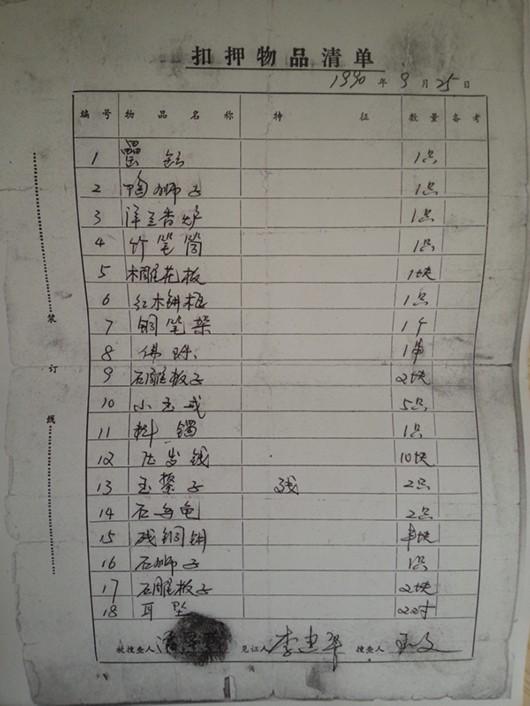 扣押物品清单
1990年9月25日
编号 物品名称 特征 数量 备考
1 1只
2 陶狮子 1只
3 香炉 1只
4 竹笔筒 1只
5 木雕花板 1块
6 红木 1只
7 铜笔架 1个
8 佛珠 1串
9 石雕板子 2块
10 小玉戒 5只
11 料镯 1只
12 压岁钱 10块
13 玉 子 残 2只
14 石乌龟 2只
15 残铜钥
16 石狮子 1只
17 石雕板子 2块
18 耳坠 22对
被搜查人 见证人 李建华 搜查人
装订线